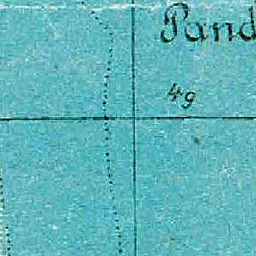 Pand
49